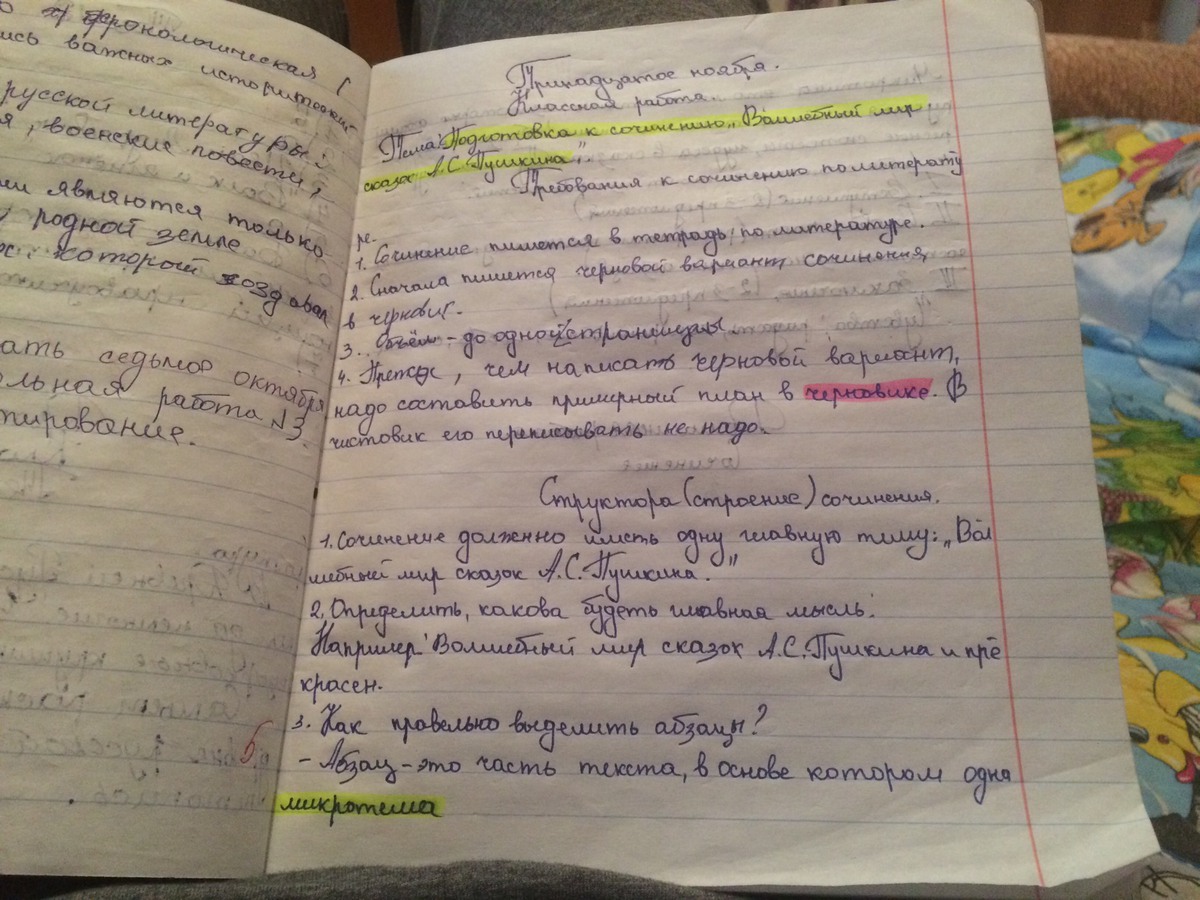 хронологическая
ись важных исторический
русской литературы:
я, военские повести,
ми являются только
родной земле
который создавал
ать седьмое октября
альная работа №3.
тирование.
5
Тринадцатое ноября.
Классная работа.
Тема: Подготовка к сочинению „Волшебный мир
сказок А.С.Пушкина".
Требования к сочинению по литерату
ре.
1. Сочинение пишется в тетрадь по литературе.
2. Сначала пишется черновой вариант сочинения
в черновик.
3. Объём - до одной страницы.
4. Прежде, чем написать черновой вариант,
надо составить примерный план в черновике. В
чистовик его переписывать не надо.
Структора (строение) сочинения.
1. Сочинение должно иметь одну главную тему: „Вол
шебный мир сказок А.С.Пушкина."
2. Определить, какова будеть главная мысль.
Например: Волшебный мир сказок А.С.Пушкина и пре
красен.
3. Как правельно выделить абзацы?
- Абзац - это часть текста, в основе котором одна
микротема